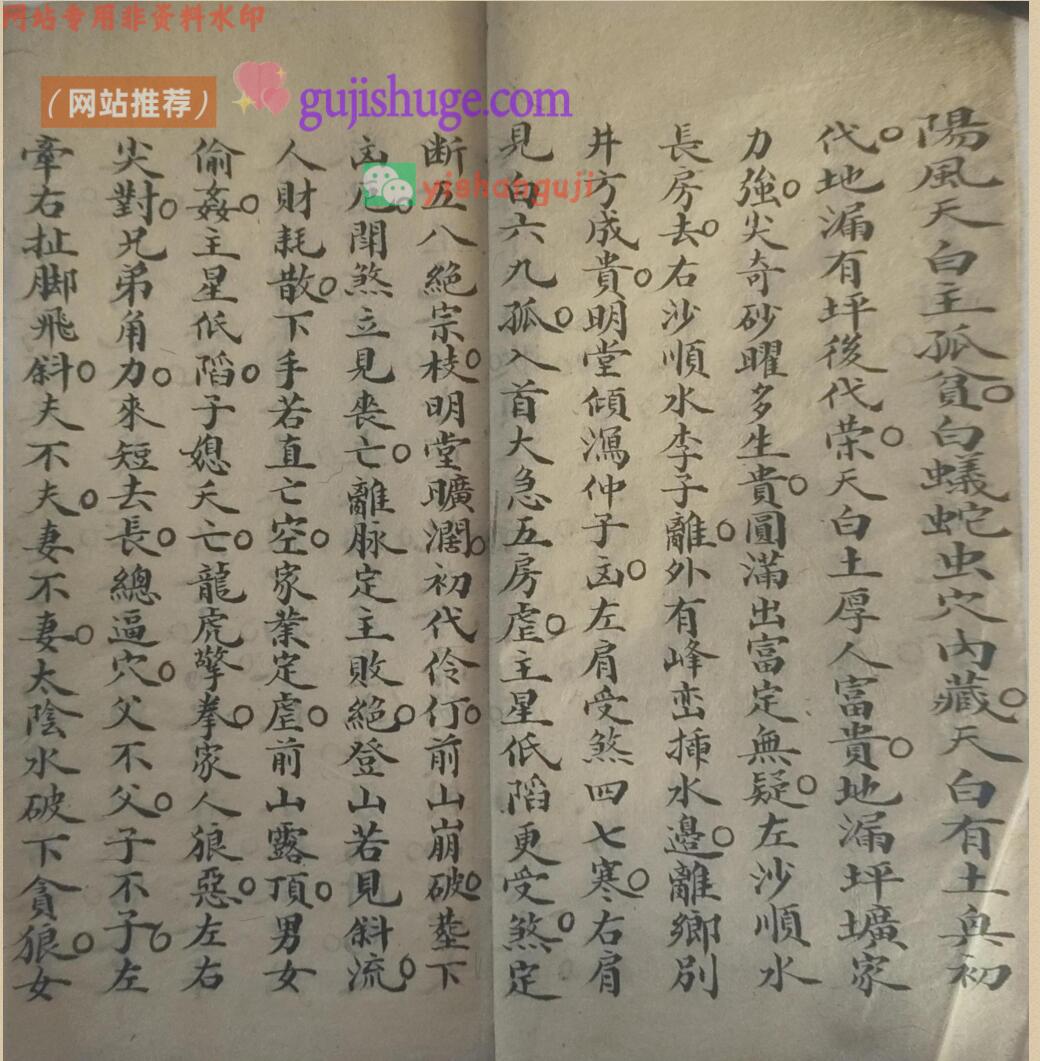 网站专用非资料水印
（网站推荐）
gujishuge.com
yishanguji
陽風天白主孤貧○白蟻蛇虫穴內藏○天白有土與初
代○地漏有坪後代荣○天白土厚人富貴○地漏坪壙家
力強○尖奇砂曜多生貴○圓滿出富定無疑○左沙順水
長房去○右沙順水李子離○外有峰峦揷水邉○離鄉別
井方成貴○明堂傾瀉仲子㐫○左肩受煞四七寒○右肩
見白六九孤○入首大急五房虗○主星低陷更受煞○定
断五八絕宗枝○明堂曠濶○初代伶仃○前山崩破○塟下
㐫危○開煞立見丧亡○離脉定主敗絕○登山若見斜流○
人財耗散○下手若直亡空○家業定虗○前山露頂○男女
偷姦○主星低陷○子媳夭亡○龍虎擎拳○家人狼惡○左右
尖對○兄弟角力○來短去長○總逼穴○父不父○子不子○左
牽右扯脚飛斜○夫不夫○妻不妻○太陰水破下貪狼○女